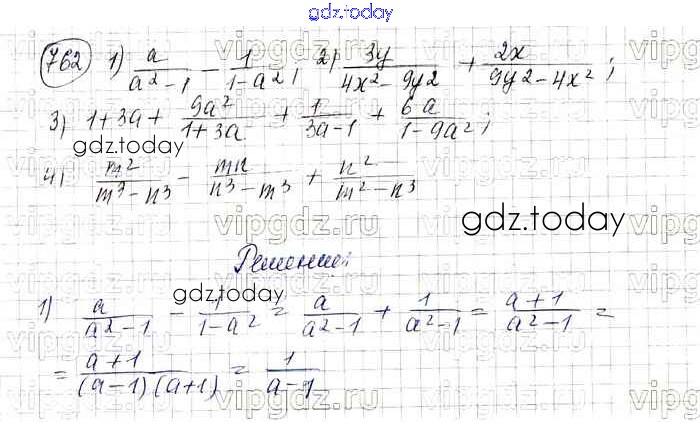 gdz.today
762 1) a/(a²-1) - 1/(1-a²); 2) 3y/(4x²-9y²) + 2x/(9y²-4x²);
3) 1+3a+ 9a²/(1+3a) + 1/(3a-1) + 6a/(1-9a²);
gdz.today
4) m²/(m³-n³) - mn/(n³-m³) + n²/(m²-n³)
gdz.today
Решение:
gdz.today
1) a/(a²-1) - 1/(1-a²) = a/(a²-1) + 1/(a²-1) = (a+1)/(a²-1) =
= (a+1)/((a-1)(a+1)) = 1/(a-1)
vipgdz.ru